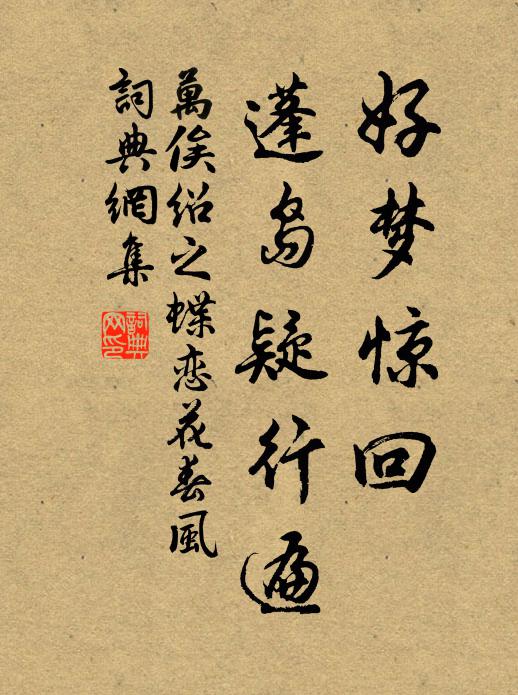 好梦惊回
蓬岛疑行遍
萬俟绍之蝶恋花春風
詞典網集
詞典网印